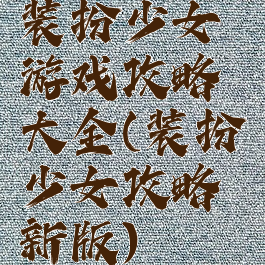 装扮少女
游戏攻略
大全(装扮
少女攻略
新版)